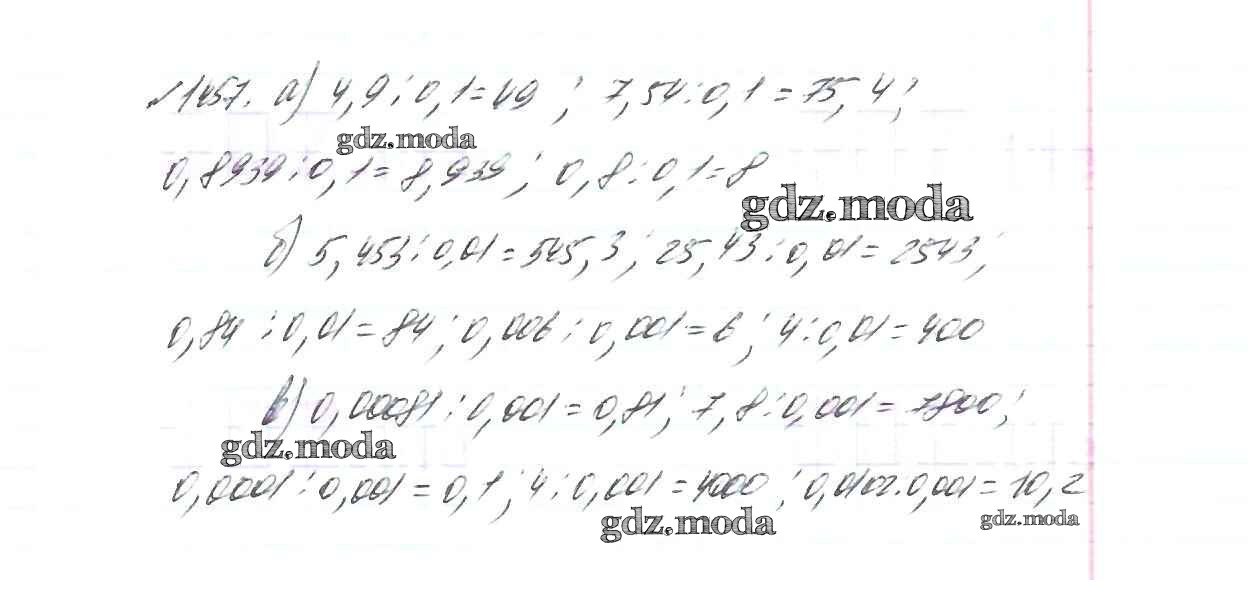 №1457. а) 4,9:0,1=49; 7,54:0,1=75,4;
gdz.moda
0,8939:0,1=8,939; 0,8:0,1=8
gdz.moda
б) 5,453:0,01=545,3; 25,43:0,01=2543;
0,84:0,01=84; 0,006:0,001=6; 4:0,01=400
в) 0,00081:0,001=0,81; 7,8:0,001=7800;
gdz.moda
0,0001:0,001=0,1; 4:0,001=4000; 0,0102:0,001=10,2
gdz.moda
gdz.moda